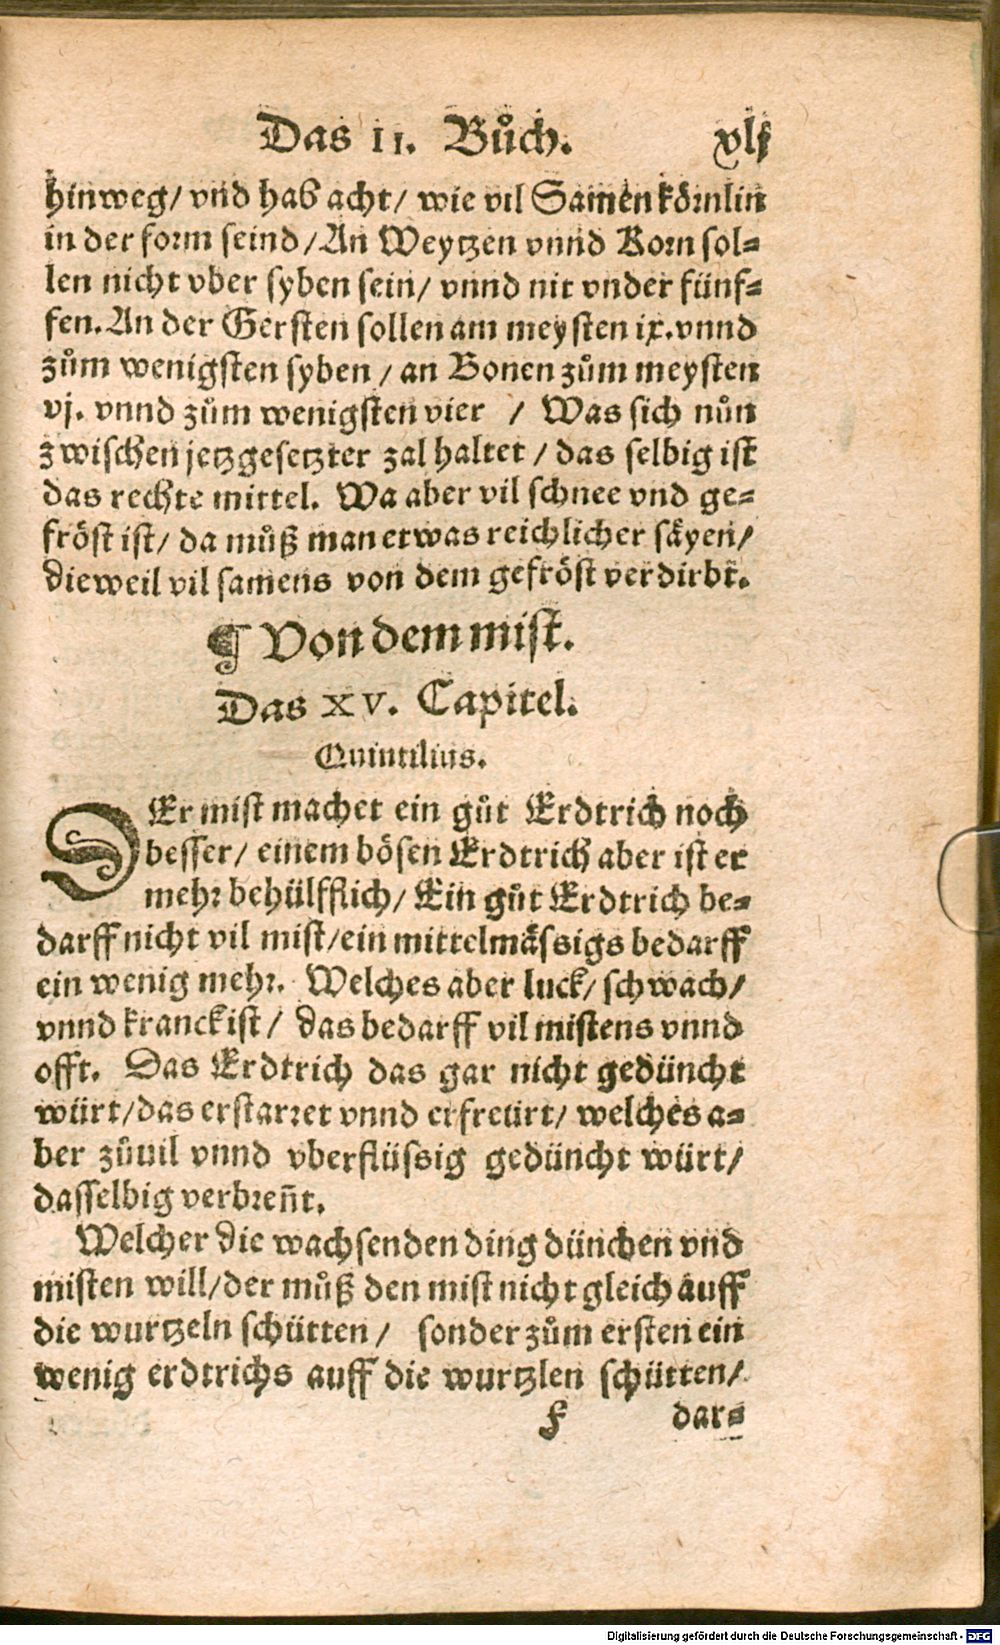 Das II. Bůch. xlj
hinweg/ vnd hab acht/ wie vil Samen körnlin
in der form seind/ An Weytzen vnnd Korn sol=
len nicht vber syben sein/ vnnd nit vnder fünf=
fen. An der Gersten sollen am meysten ix. vnnd
zům wenigsten syben/ an Bonen zům meysten
vj. vnnd zům wenigsten vier / Was sich nůn
zwischen jetzgesetzter zal haltet/ das selbig ist
das rechte mittel. Wa aber vil schnee vnd ge=
fröst ist/ da můß man etwas reichlicher säyen/
dieweil vil samens von dem gefröst verdirbt.
¶ Von dem mist.
Das XV. Capitel.
Quintilius.
DEr mist machet ein gůt Erdtrich noch
besser/ einem bösen Erdtrich aber ist er
mehr behülfflich/ Ein gůt Erdtrich be=
darff nicht vil mist/ ein mittelmässigs bedarff
ein wenig mehr. Welches aber luck/ schwach/
vnnd kranck ist/ das bedarff vil mistens vnnd
offt. Das Erdtrich das gar nicht gedüncht
würt/ das erstarret vnnd erfreürt/ welches a=
ber zůuil vnnd vberflüssig gedüncht würt/
dasselbig verbreñt.
Welcher die wachsenden ding dünchen vnd
misten will/ der můß den mist nicht gleich auff
die wurtzeln schütten/ sonder zům ersten ein
wenig erdtrichs auff die wurtzlen schütten/
f dar=
Digitalisierung gefördert durch die Deutsche Forschungsgemeinschaft - DFG